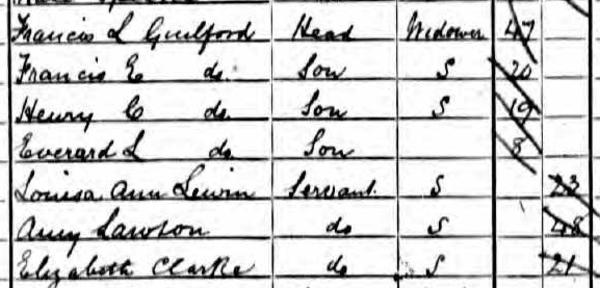 Francis L Guilford Head Widower 47
Francis E do. Son S 20
Henry C do. Son S 19
Everard L do. Son 8
Louisa Ann Lewin Servant S 23
Amy Lawson do S 48
Elizabeth Clarke do S 21